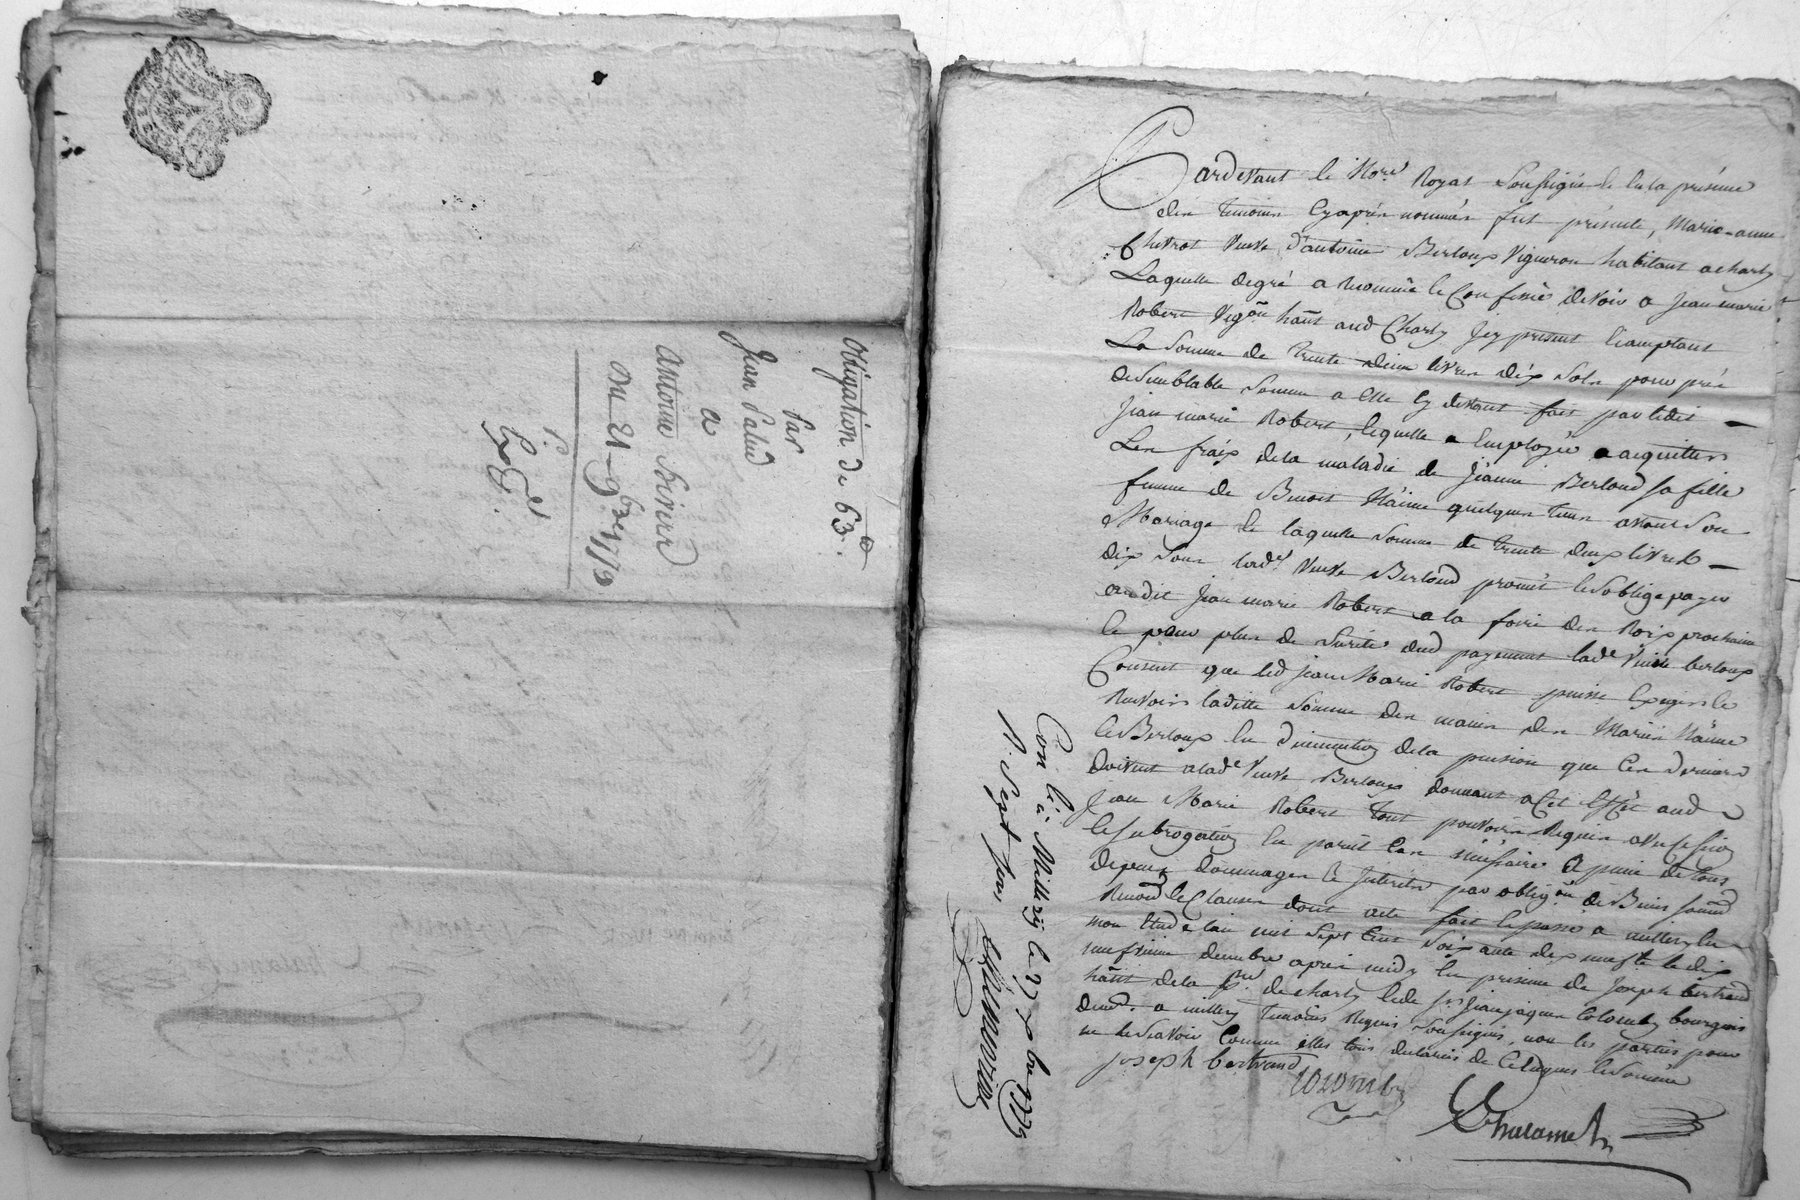 Obligation de 63 ₶.
Par
Jean Salud
a
Antoine
du 21 9bre 1773
Pardevant le Nore Royal soussigné & en la présence
des temoins cyaprés nommés fut présente, Marie-anne
veuve d'antoine Berloup Vigneron habitant a charly
Laquelle de gré a & Confessé devoir a Jean marie
Robert Vigon hant aud Charly jcy présent
La somme de trente deux livres dix sols pour prés
de semblable somme a elle cy devant fait par ledit
Jean marie Robert, lequelle a Employée a acquitter
Les fraix de la maladie de Jeanne Berloud sa fille
femme de Benoit quelques tems avant son
Mariage & laquelle somme de trente deux livres
dix sous lade veuve Berloud promet & s'oblige payer
audit Jean marie Robert a la foire des Rois prochaine
& pour plus de sureté dud payement lade Veuve berloup
Consent que led Jean Marie Robert puisse Exiger &
Recevoir laditte somme des mains des Mariés
& Berloup En diminution de la pension que ces derniers
doivent a lade Veuve Berloup donnant a Cet Effet aud
Jean Marie Robert tout pouvoir Requis
& subrogation En pareil Cas nécéssaire a peine de tous
depens dommages & Interets par obligon de Biens
Renon & Clauses dont acte fait & passé a millery En
mon Etude L'an mil sept Cent Soixante dix neuf & le dix
neufvieme decembre aprés midy En présence de Joseph bertrand
hant de la pse de charly & de sr jean jaques Colomby bourgeois
demt a millery temoins Requis soussignés, non les parties pour
ne le scavoir Comme elles tous de Ce Enquis & sommé
joseph bertrand
colomby
Chalamel
Con lé à Millery le 27 xbre 1779
R. Sept sous